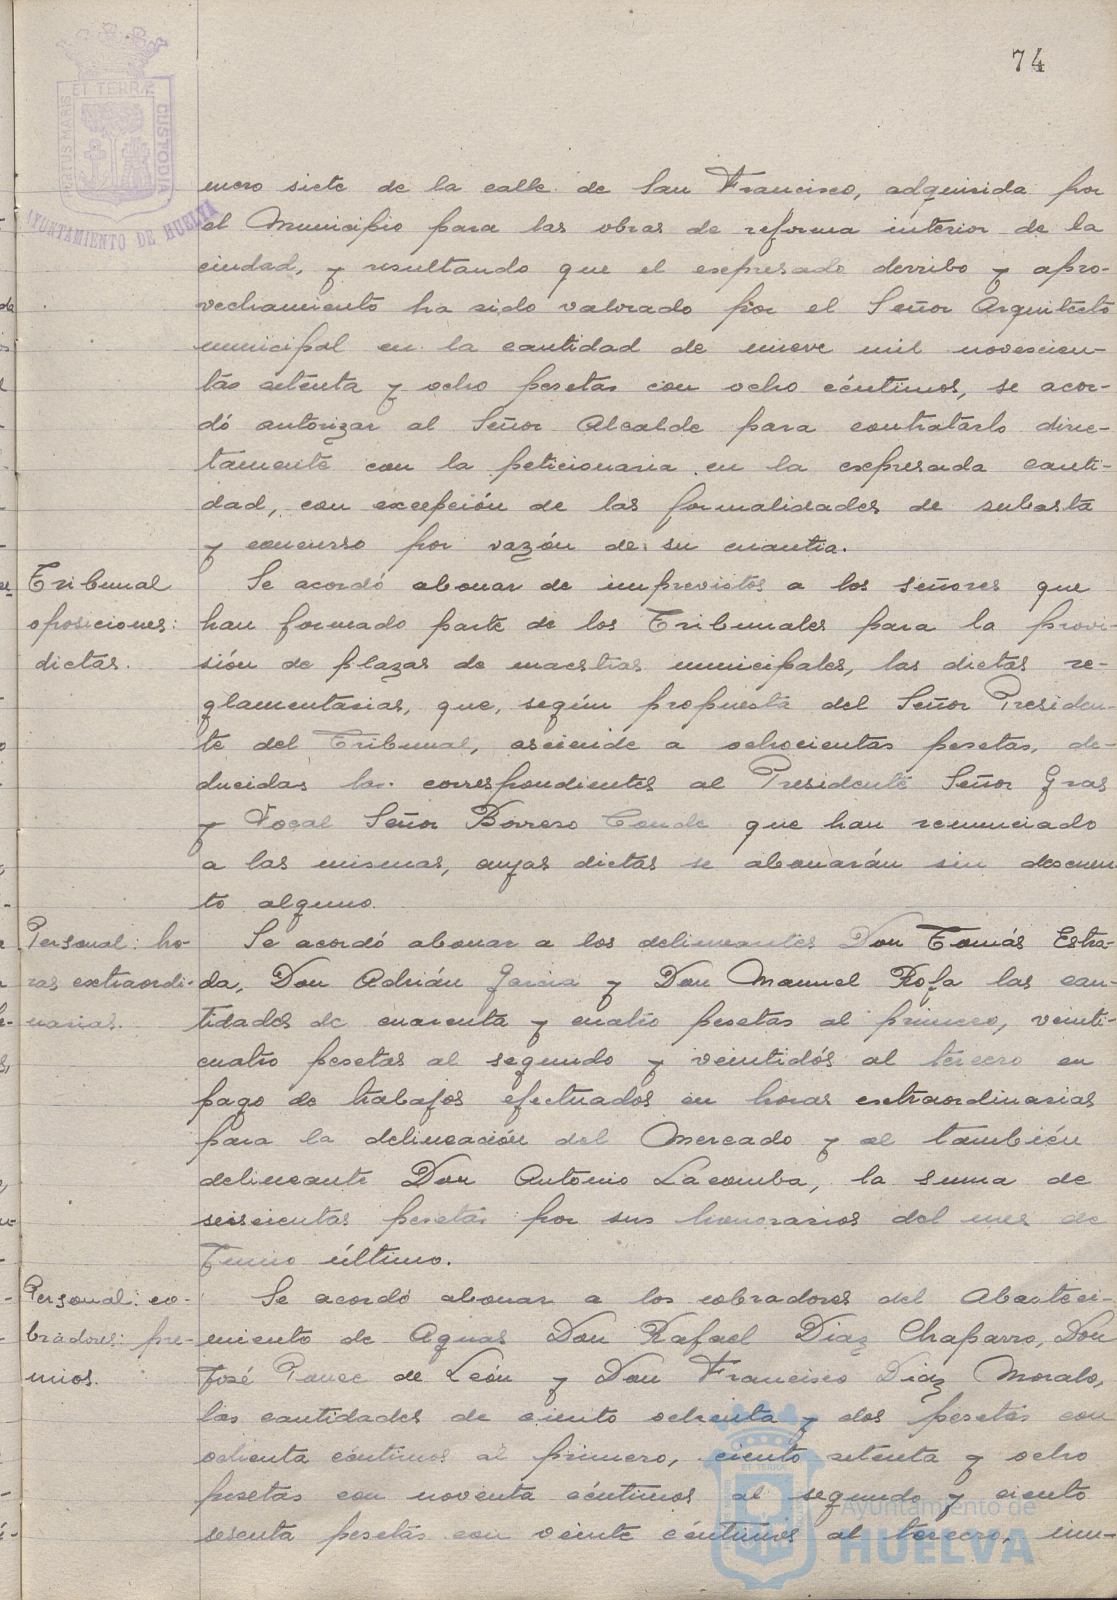 74
ET TERRÆ
PORTUS MARIS
CUSTODIA
AYUNTAMIENTO DE HUELVA
mero siete de la calle de San Francisco, adquirida por
el Municipio para las obras de reforma interior de la
ciudad, y resultando que el expresado derribo y apro-
vechamiento ha sido valorado por el Señor Arquitecto
municipal en la cantidad de nueve mil novecien-
tas setenta y ocho pesetas con ocho céntimos, se acor-
dó autorizar al Señor Alcalde para contratarlo direc-
tamente con la peticionaria en la expresada canti-
dad, con excepción de las formalidades de subasta
y concurso por razón de su cuantia.
Tribunal
oposiciones:
dietas.
Se acordó abonar de imprevistos a los señores que
han formado parte de los Tribunales para la provi-
sión de plazas de maestras municipales, las dietas re-
glamentarias, que, según propuesta del Señor Presiden-
te del Tribunal, asciende a ochocientas pesetas, de-
ducidas las correspondientes al Presidente Señor Gras
y Vocal Señor Borrero Conde que han renunciado
a las mismas, cuyas dietas se abonarán sin descuen
to alguno.
Personal: ho-
ras extraordi-
narias.
Se acordó abonar a los delineantes Don Tomás Estra-
da, Don Adrián Garcia y Don Manuel Rofa las can-
tidades de cuarenta y cuatro pesetas al primero, veinti-
cuatro pesetas al segundo y veintidós al tercero en
pago de trabajos efectuados en horas extraordinarias
para la delineación del Mercado y al también
delineante Don Antonio Lacomba, la suma de
seiscientas pesetas por sus honorarios del mes de
Junio último.
Personal: co-
bradores: pre-
mios.
Se acordó abonar a los cobradores del Abasteci-
miento de Aguas Don Rafael Diaz Chaparro, Don
José Ponce de León y Don Francisco Diaz Moralo,
las cantidades de ciento ochenta y dos pesetas con
ochenta céntimos al primero, ciento setenta y ocho
pesetas con noventa céntimos al segundo y ciento
sesenta pesetas con veinte céntimos al tercero, im-
Ayuntamiento de
HUELVA